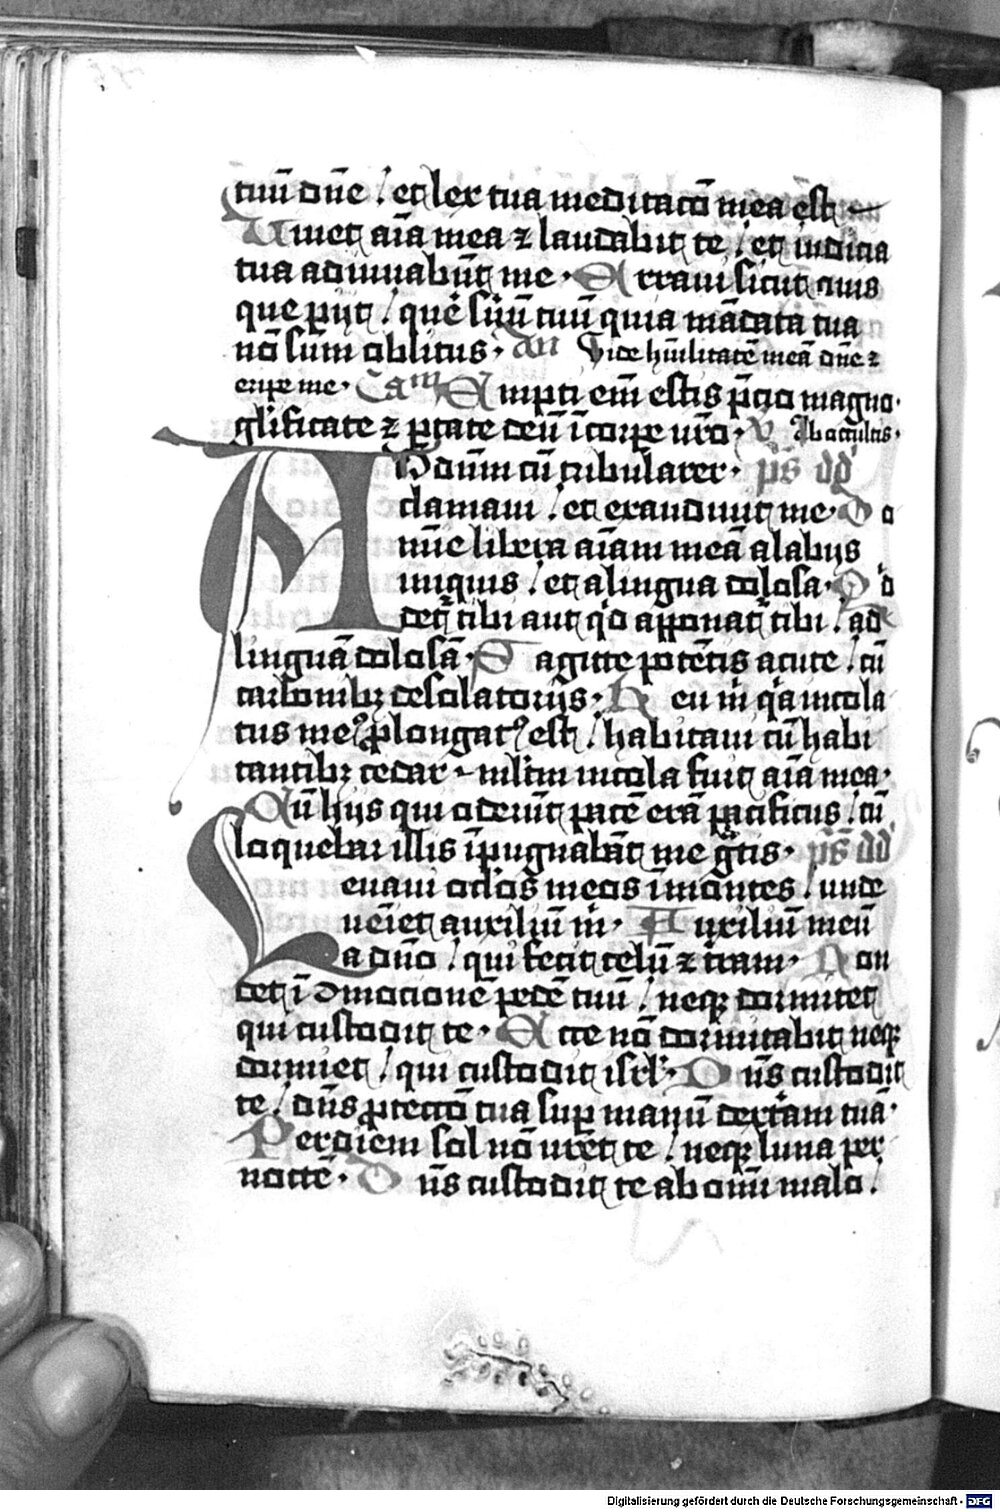 tuū dn̄e / et lex tua meditacō mea est
Uiuet aīa mea ⁊ laudabit te / et iudicia
tua adiuuabūt me · Erraui sicut ouis
que perijt / quere seruū tuū quia mādata tua
nō sum oblitus · an̄ Vide hūilitatē meā dn̄e ⁊
eripe me · Capm̄ Empti em̄ estis p̄cio magno ·
glīficate ⁊ portate deū ī corpe urō · v̄ Ab occultis ·
AD dn̄m cū tribularer · ps̄ dd
clamaui / et exaudiuit me · Do
mīe libera aīam meā a labijs
iniquis / et a lingua dolosa · Qͥd
det̄ tibi aut qͥd apponat̄ tibi / ad
linguā dolosā · Sagitte potētis acute / cū
carbonibꝫ desolatorijs · Heu m̄ qͥa incola
tus meꝰ ꝓlongatꝰ est / habitaui cū habi
tantibꝫ cedar · mltm̄ incola fuit aīa mea ·
Cū hijs qui oderūt pacē erā pacificus / cū
loquebar illis īpugnabāt me gͣtis · ps̄ dd
Leuaui oclōs meos ī montes / unde
ueīet auxiliū m̄ · Auxiliū meū
a dn̄o / qui fecit celū ⁊ t̄ram · Non
det ī ɔmocionē pedē tuū / neqꝫ dormitet
qui custodit te · Ecce nō dormitabit neqꝫ
dormiet / qui custodit isrl̄ · Dn̄s custodit
te / dn̄s ꝓtectō tua sup manū dextͣam tuā ·
Per diem sol nō uret te / neqꝫ luna per
noctē · Dn̄s custodit te ab omī malo /
Digitalisierung gefördert durch die Deutsche Forschungsgemeinschaft - DFG